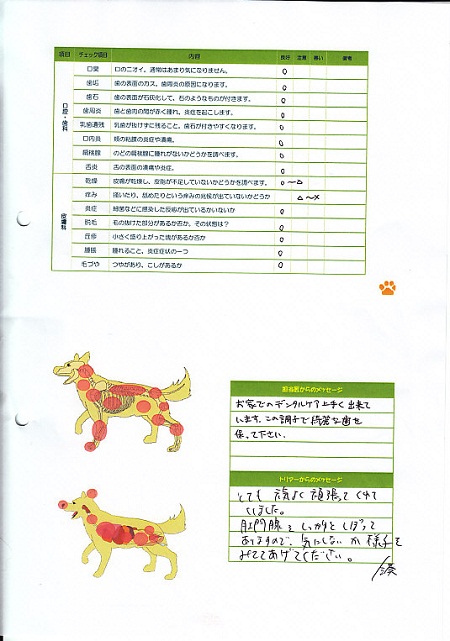 項目 チェック項目 内容 良好 注意 悪い 備考
口腔・歯科
口臭 口のニオイ。通常はあまり気になりません。 ○
歯垢 歯の表面のカス。歯周炎の原因になります。 ○
歯石 歯の表面が石灰化して、石のようなものが付きます。 ○
歯周炎 歯と歯肉の間が赤く腫れ、炎症を起こします。 ○
乳歯遺残 乳歯が抜けずに残ること。歯石が付きやすくなります。 ○
口内炎 頬の粘膜の炎症や潰瘍。 ○
扁桃腺 のどの扁桃腺に腫れがないかどうかを調べます。 ○
舌炎 舌の表面の潰瘍や炎症。 ○
皮膚科
乾燥 皮膚が乾燥し、皮脂が不足していないかどうかを調べます。 ○〜△
痒み 掻いたり、舐めたりという痒みの兆候が出ていないかどうか △〜×
炎症 細菌などに感染した反応が出ているかいないか ○
脱毛 毛の抜けた部分があるか否か、その状態は? ○
丘疹 小さく盛り上がった塊があるか否か ○
腫脹 腫れること。炎症症状の一つ ○
毛づや つやがあり、こしがあるか ○
担当医からのメッセージ
お家でのデンタルケア上手く出来て
います。この調子で綺麗な歯を
保って下さい。
トリマーからのメッセージ
とても 頑張ってくれて
いました。
肛門腺も しっかりと しぼって
ありますので、気にしないか 様子を
みてあげてください。